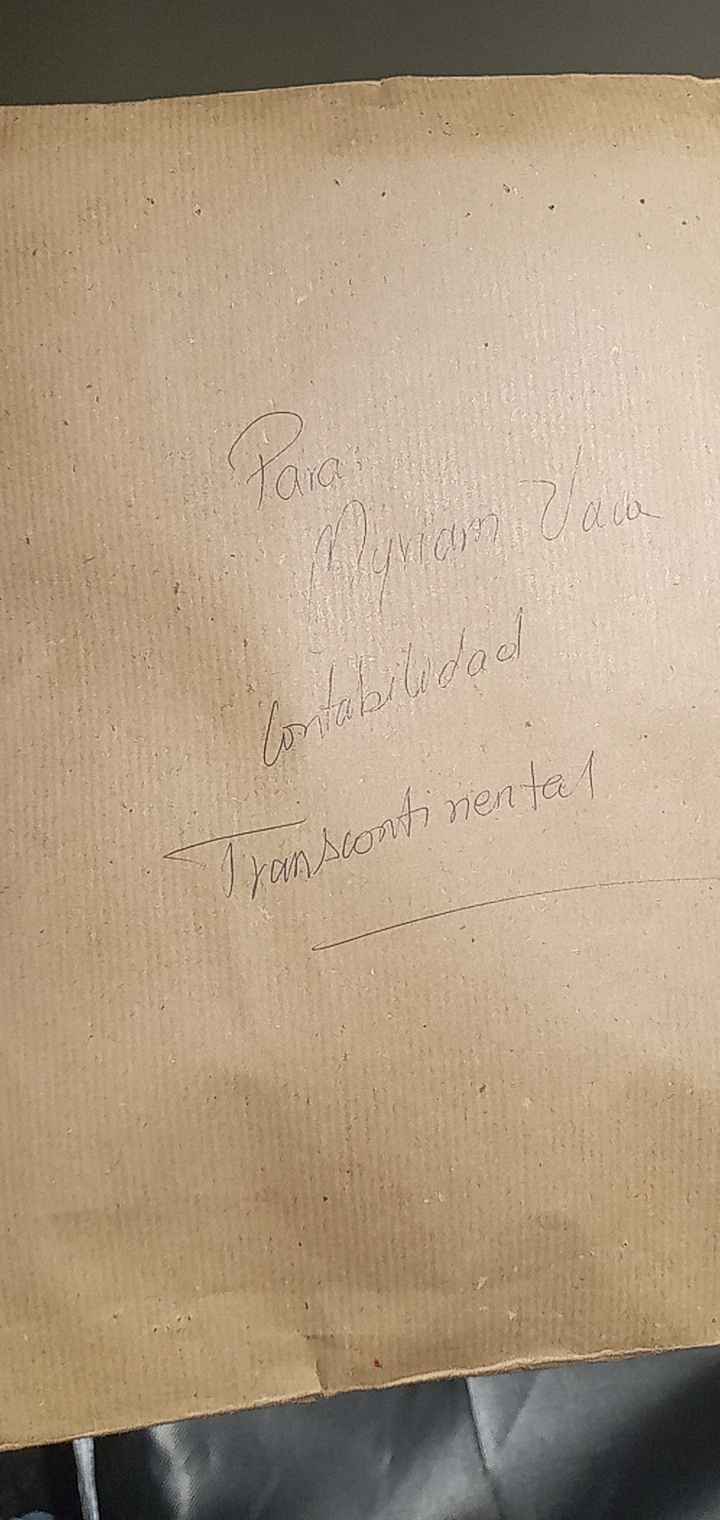 Para:
Myriam Vaca
Contabilidad
Transcontinental